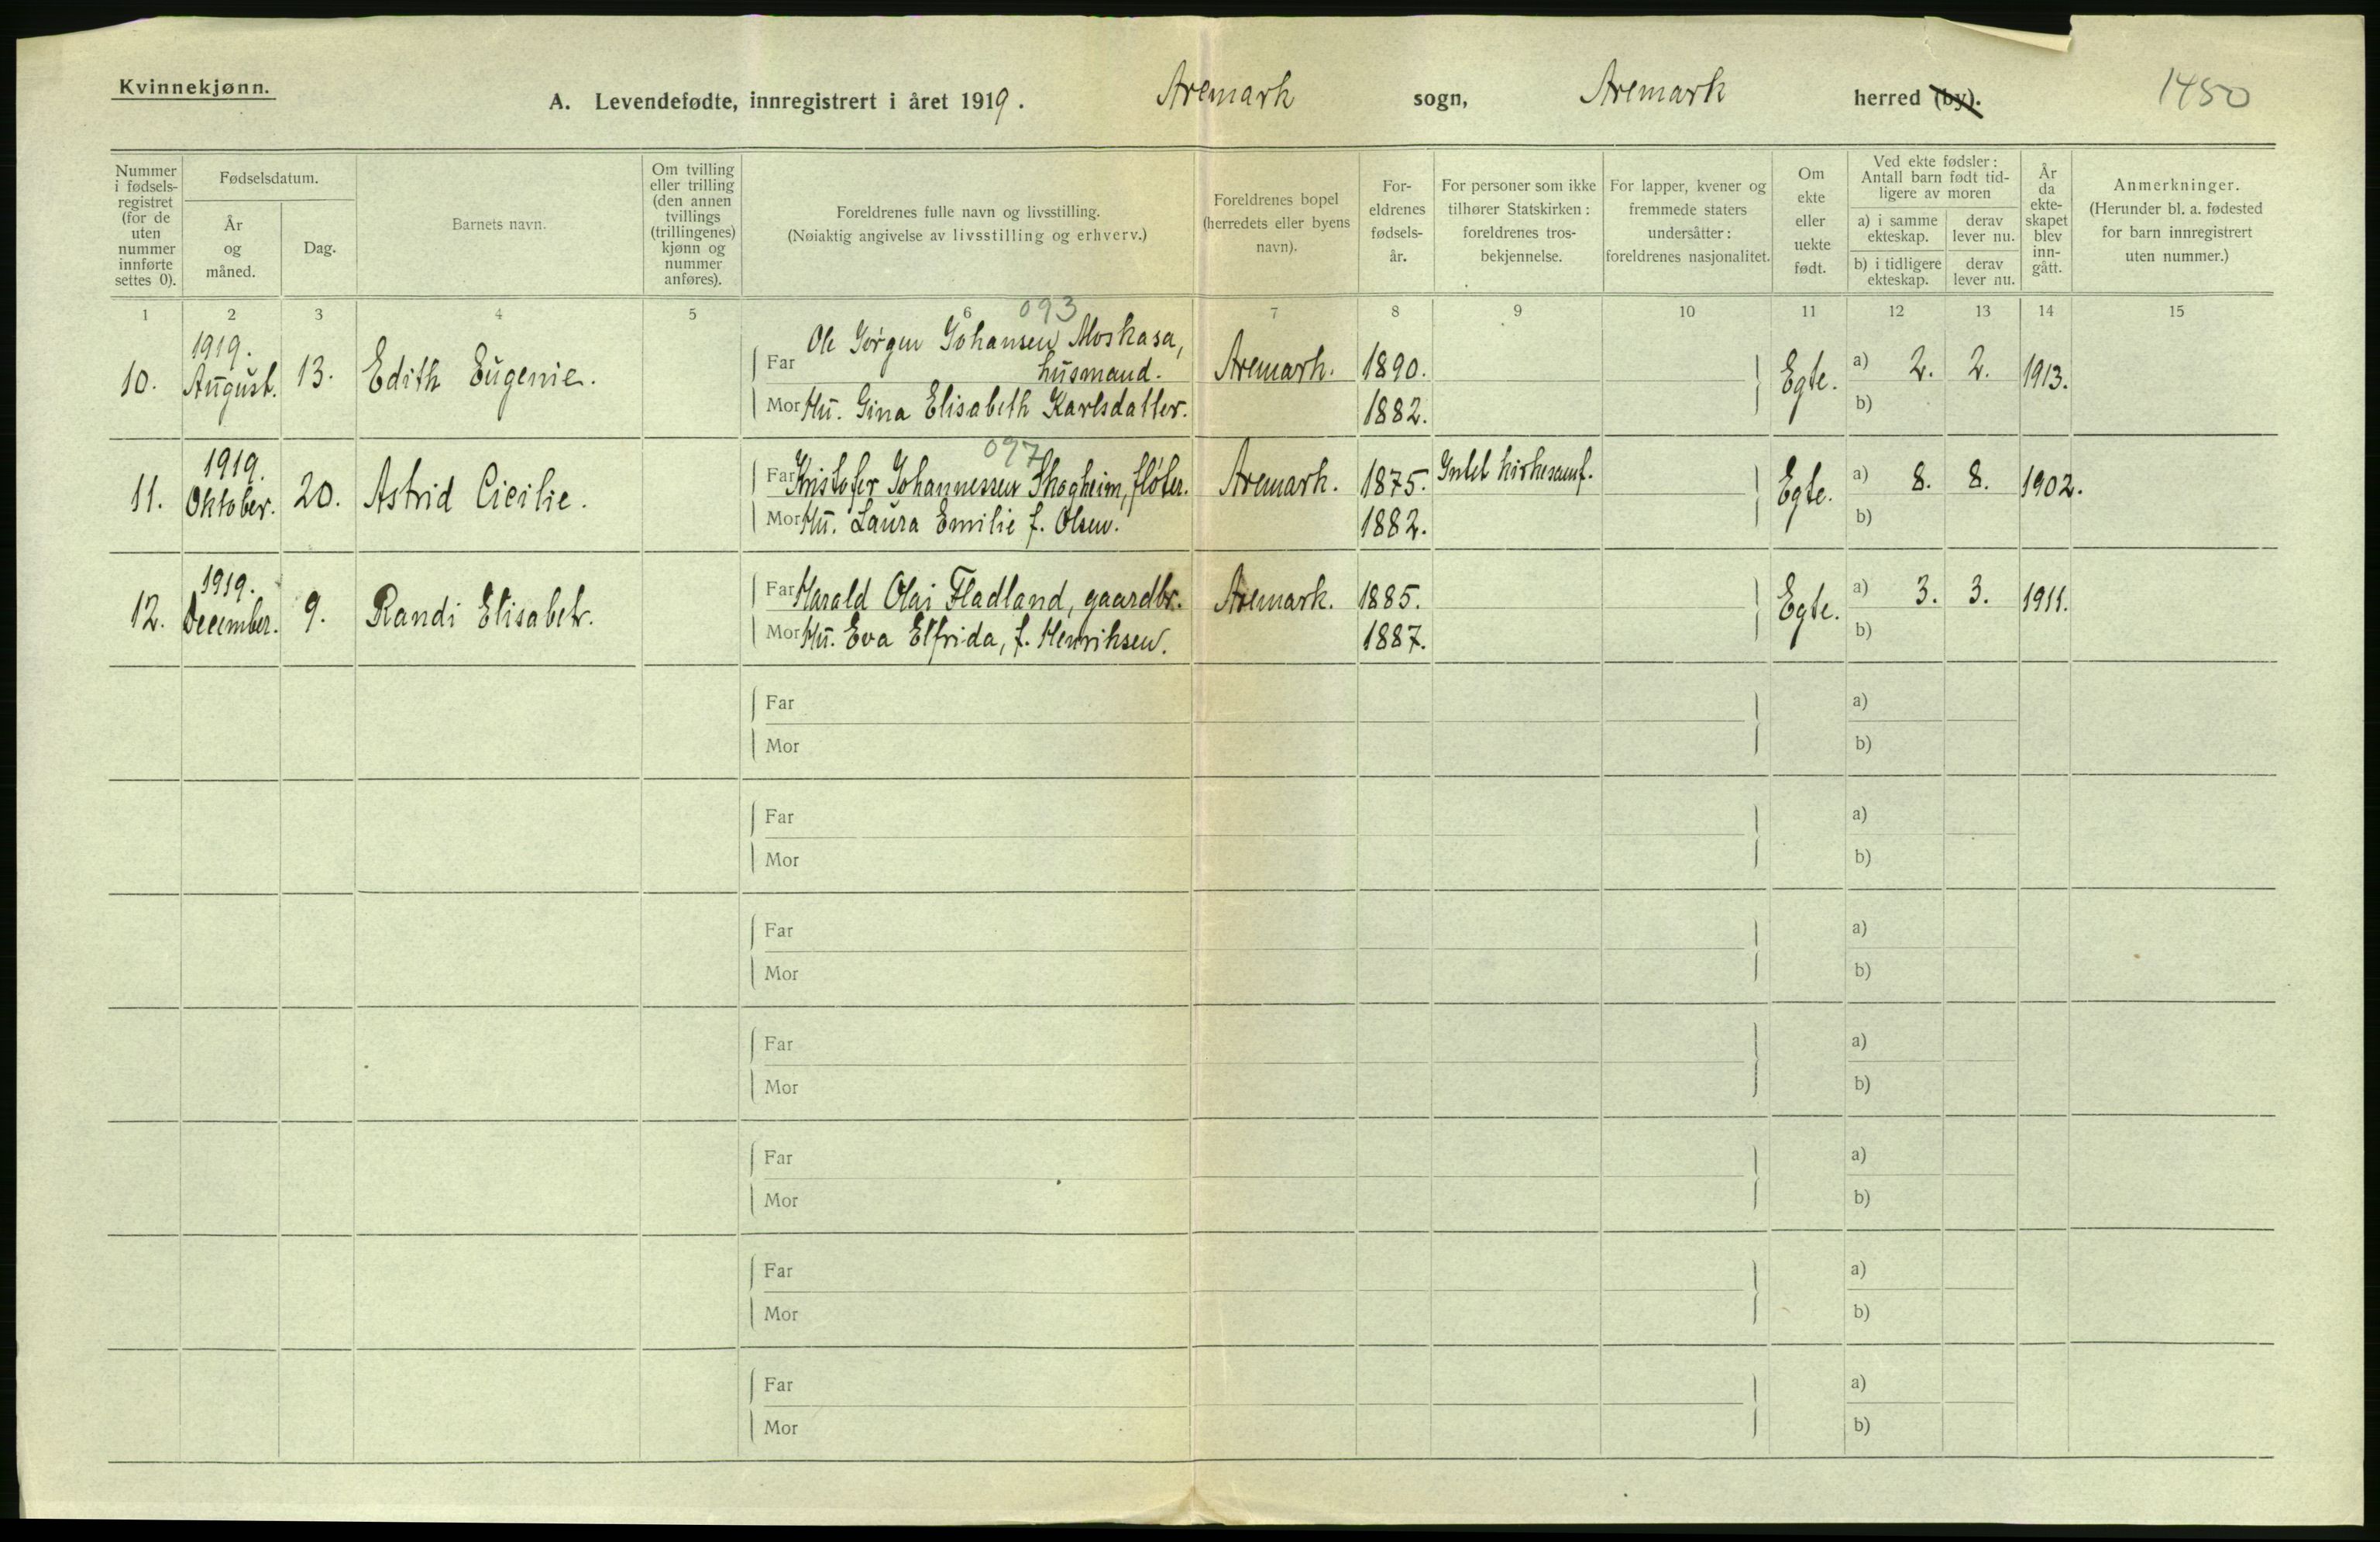 Kvinnekjønn.
A. Levendefødte, innregistrert i året 1919. Aremark sogn, Aremark herred (by). 1450
Nummer i fødsels-registret (for de uten nummer innførte settes 0).
Fødselsdatum.
År og måned.
Dag.
Barnets navn.
Om tvilling eller trilling (den annen tvillings (trillingenes) kjønn og nummer anføres).
Foreldrenes fulle navn og livsstilling.
(Nøiaktig angivelse av livsstilling og erhverv.)
Foreldrenes bopel (herredets eller byens navn).
For-eldrenes fødsels-år.
For personer som ikke tilhører Statskirken: foreldrenes tros-bekjennelse.
For lapper, kvener og fremmede staters undersåtter: foreldrenes nasjonalitet.
Om ekte eller uekte født.
Ved ekte fødsler: Antall barn født tid-ligere av moren
a) i samme ekteskap.
derav lever nu.
b) i tidligere ekteskap.
derav lever nu.
År da ekte-skapet blev inn-gått.
Anmerkninger.
(Herunder bl. a. fødested for barn innregistrert uten nummer.)
1 2 3 4 5 6 7 8 9 10 11 12 13 14 15
093
10. 1919. August. 13. Edith Eugenie.
Far Ole Jørgen Johansen Moskasa, husmand. Aremark. 1890. Egte. a) 2. 2. 1913.
Mor Hu. Gina Elisabeth Karlsdatter. 1882. b)
097
11. 1919. Oktober. 20. Astrid Cicilie.
Far Kristofer Johannessen Skogheim, fløter. Aremark. 1875. Intet kirkesamf. Egte. a) 8. 8. 1902.
Mor Hu. Laura Emilie f. Olsen. 1882. b)
12. 1919. December. 9. Randi Elisabet.
Far Harald Olai Fladland, gaardbr. Aremark. 1885. Egte. a) 3. 3. 1911.
Mor Hu. Eva Elfrida, f. Henriksen. 1887. b)
Far a)
Mor b)
Far a)
Mor b)
Far a)
Mor b)
Far a)
Mor b)
Far a)
Mor b)
Far a)
Mor b)
Far a)
Mor b)